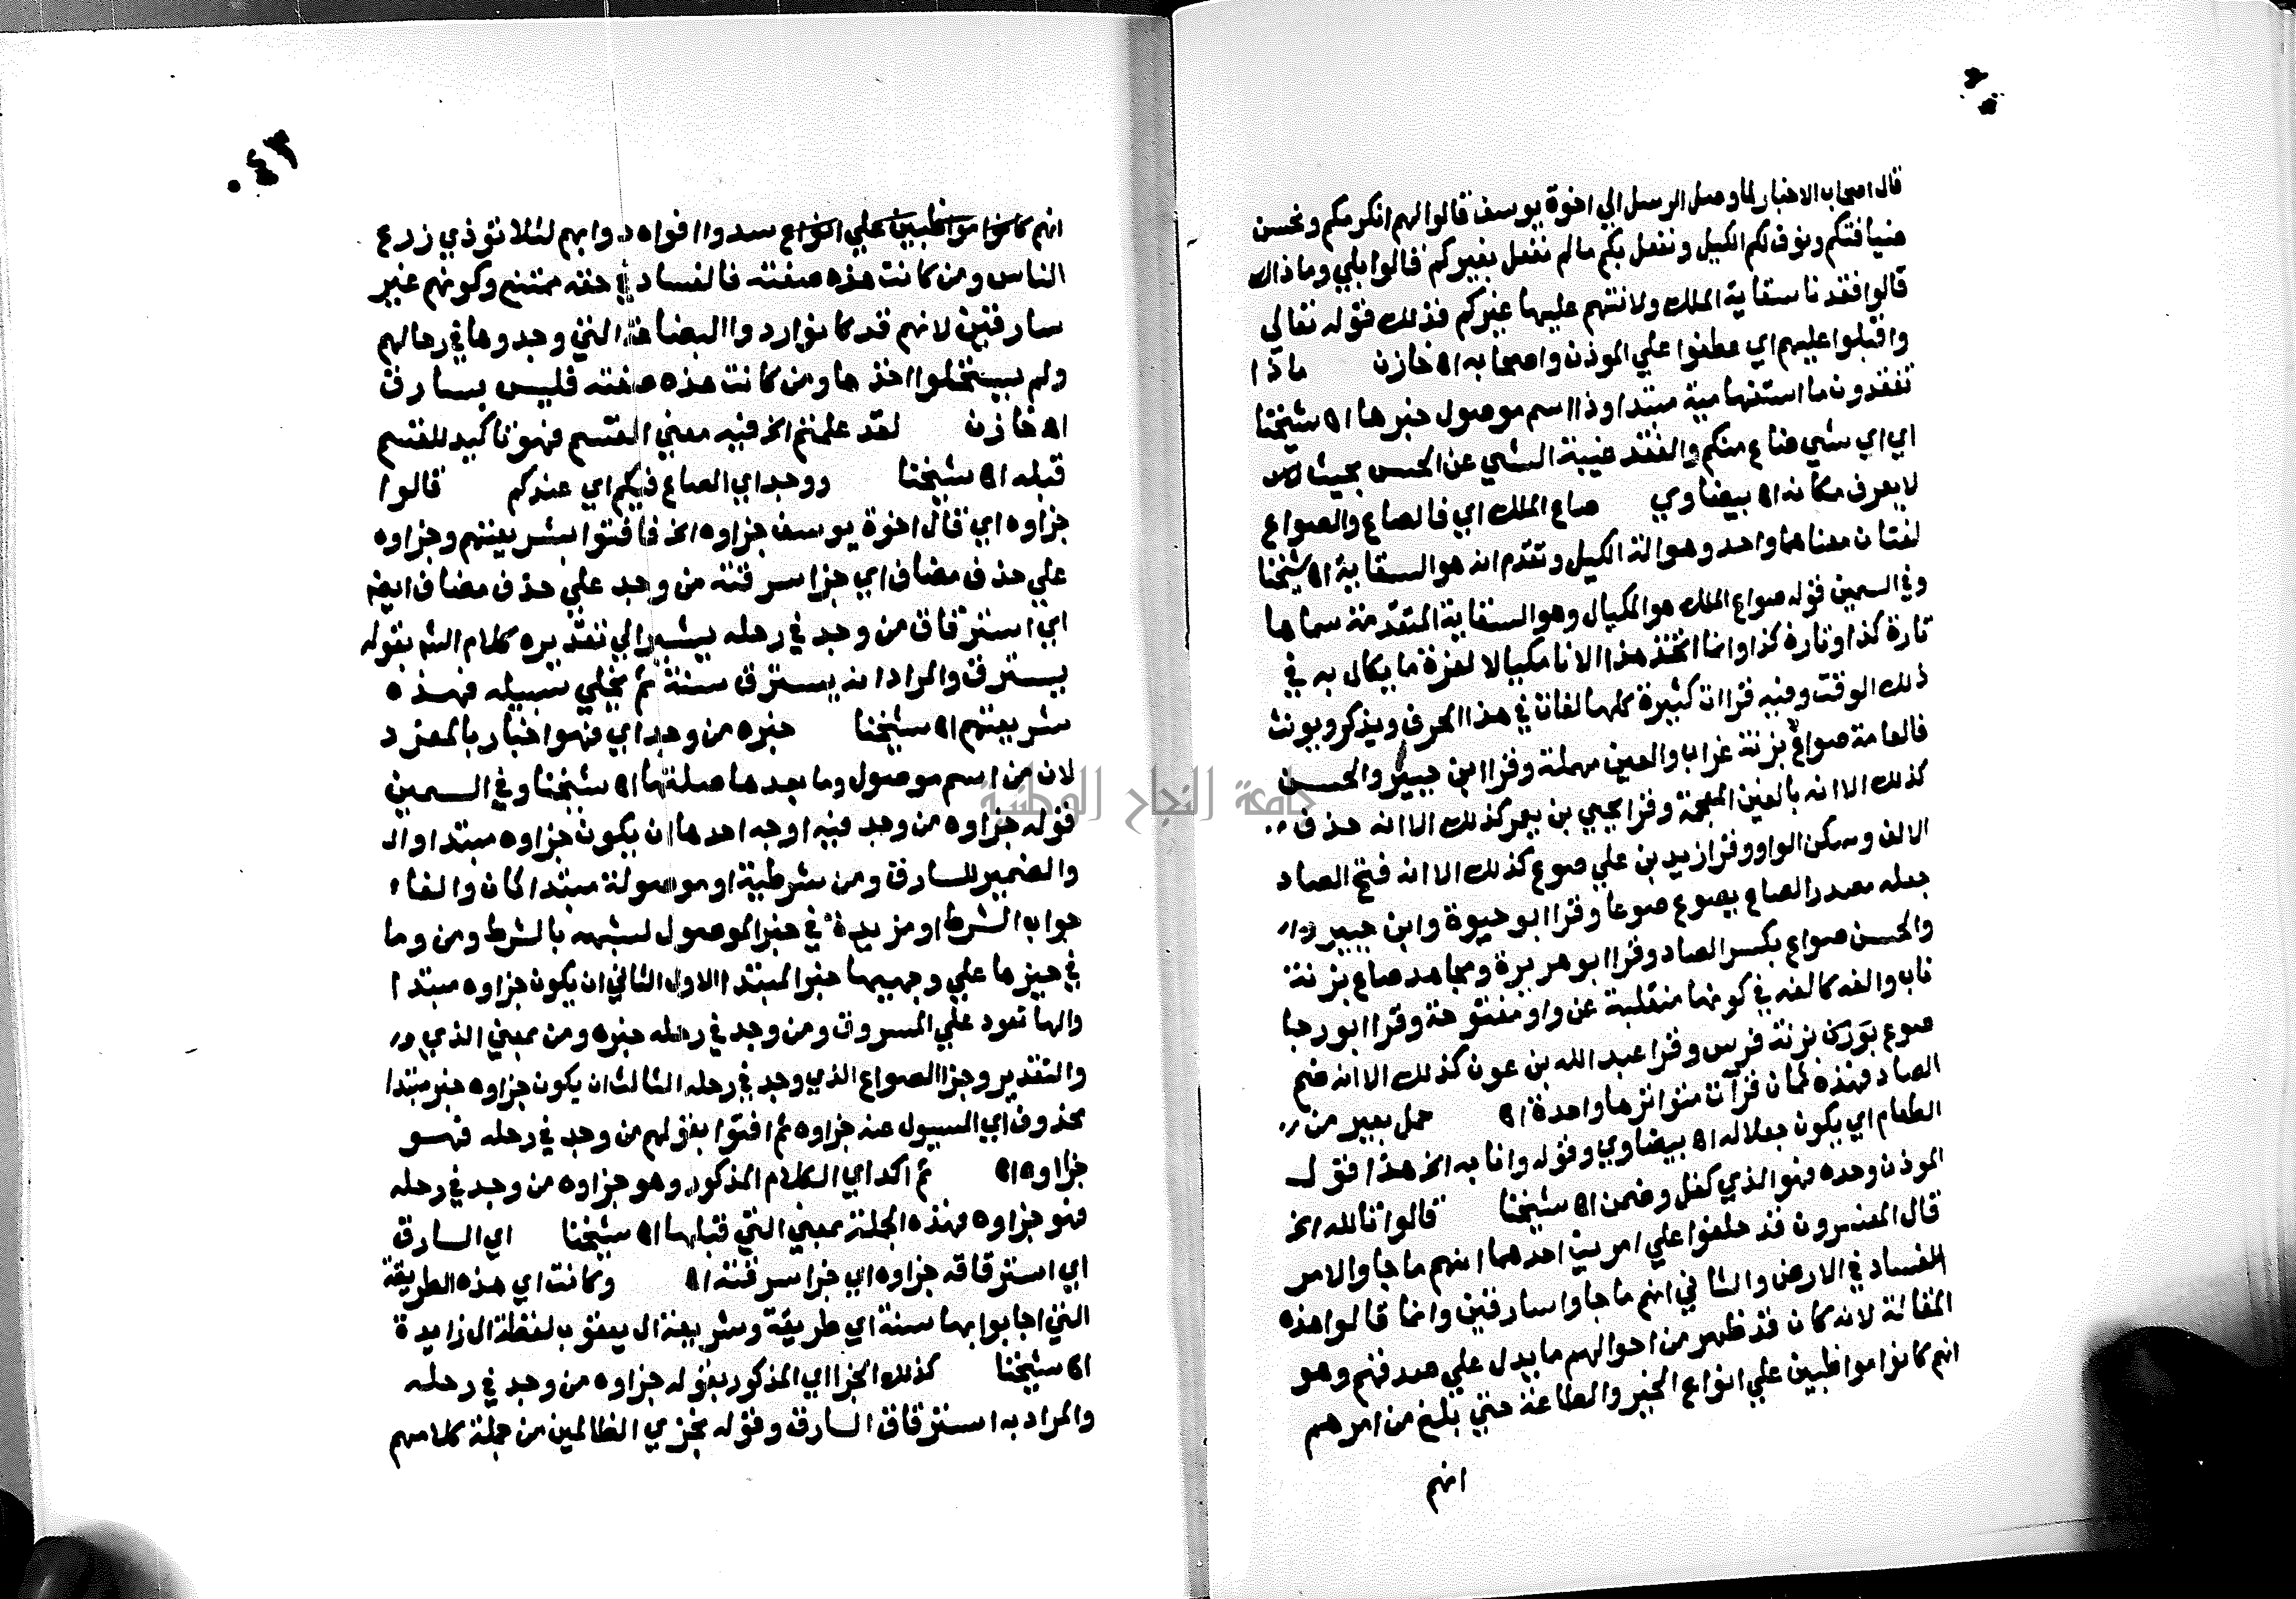 قال اصحاب الاخبار لما وصل الرسل الي اخوة يوسف قالوا لهم انكرمكم ونحسن
ضيافتكم ونوف لكم الكيل ونفعل بكم ما لم نفعل بغيركم قالوا بلي وما ذاك
قالوا فقدنا سقاية الملك ولا نتهم عليها غيركم فذلك قوله تعالي
واقبلوا عليهم اي عطفوا علي الموذن واصحابه اه خازن ماذا
تفقدون ما استفهامية مبتدا وذا اسم موصول خبرها اه شيخنا
اي اي شي ضاع منكم والفقد غيبة الشي عن الحس بحيث
لا يعرف مكانه اه بيضاوي صاع الملك اي فالصاع والصواع
لغتان معناهما واحد وهو الة الكيل وتقدم انه هو السقاية اه شيخنا
وفي السمين قوله صواع الملك هو المكيال وهو السقاية المتقدمة سماها
تارة كذا وتارة كذا وانما اتخذ هذا الانا مكيالا لعزة ما يكال به في
ذلك الوقت وفيه قراات كثيرة كلها لغات في هذا الحرف ويذكر ويونث
فالعامة صواع بزنة غراب والعين مهملة وقرا ابن جبير والحسن
كذلك الا انه بالغين المعجمة وقرا يحيي بن يعمر كذلك الا انه حذف
الالف وسكن الواو وقرا زيد بن علي صوغ كذلك الا انه فتح الصاد
جعله مصدرا لصاغ يصوغ صوغا وقرا ابو حيوة وابن جبير
والحسن صواع بكسر الصاد وقرا ابو هريرة ومجاهد صاع بزنة
ناب والفه كالفه في كونها منقلبة عن واو مفتوحة وقرا ابو رجا
صوع بوزن بزنة قوس وقرا عبد الله بن عون كذلك الا انه ضم
الصاد فهذه ثمان قرآت متواترها واحدة اه حمل بعير من
الطعام اي يكون جعلا له اه بيضاوي وقوله وانا به الخ هذا قول
الموذن وحده فهو الذي كفل وضمن اه شيخنا قالوا تالله الخ
قال المفسرون قد حلفوا علي امرين احدهما انهم ما جاوا لامر
الفساد في الارض والثاني انهم ما جاوا سارقين وانما قالوا هذه
المقالة لانه كان قد ظهر من احوالهم ما يدل علي صدقهم وهو
انهم كانوا مواظبين علي انواع الخير والطاعة حتي بلغ من امرهم
انهم
٠٤٣
انهم كانوا مواظبين علي انواع سدوا افواه دوابهم لئلا توذي زرع
الناس ومن كانت هذه صفته فالفساد في حقه ممتنع وكونهم غير
سارقين لانهم قد كانوا ردوا البضاعة التي وجدوها في رحالهم
ولم يستحلوا اخذها ومن كانت هذه صفته فليس بسارق
اه خازن لقد علمتم الخ فيه معني القسم فهو تاكيد للقسم
قبله اه شيخنا ووجد اي الصاع فيكم اي عندكم قالوا
جزاوه اي قال اخوة يوسف جزاوه الخ فافتوا بشريعتهم وجزاوه
علي حذف مضاف اي جزا سرقته من وجد علي حذف مضاف ايضا
اي استرقاق من وجد في رحله يشير الي تقديره كلام الشم بقوله
يسترق والمراد انه يسترق سنة ثم يخلي سبيله فهذه
شريعتهم اه شيخنا خبره من وجد اي فهو اخبار بالمفرد
لان من اسم موصول وما بعدها صلتها اه شيخنا وفي السمين
قوله جزاوه من وجد فيه اوجه احدها ان يكون جزاوه مبتدا وال
والضمير للسارق ومن شرطية او موصولة مبتدا ثان والفاء
جواب الشرط او مزيدة في خبر الموصول لشبهه بالشرط ومن وما
في حيزها علي وجهيها خبر المبتدا الاول الثاني ان يكون جزاوه مبتدا
والها تعود علي المسروق ومن وجد في رحله خبره ومن بمعني الذي
والتقدير وجزا الصواع الذي وجد في رحله الثالث ان يكون جزاوه خبر مبتدا
محذوف اي المسيول عنه جزاوه ثم افتوا بقولهم من وجد في رحله فهو
جزاوه اه ثم اكد اي الكلام المذكور وهو جزاوه من وجد في رحله
فهو جزاوه فهذه الجملة بمعني التي قبلها اه شيخنا اي السارق
اي استرقاقه جزاوه اي جزا سرقته اه وكانت اي هذه الطريقة
التي اجابوا بها سنة اي طريقة وشريعة ال يعقوب لفظة ال زايدة
اه شيخنا كذلك الجزا اي المذكور بقوله جزاوه من وجد في رحله
والمراد به استرقاق السارق وقوله نجزي الظالمين من جملة كلامهم
جامعة النجاح الوطنية